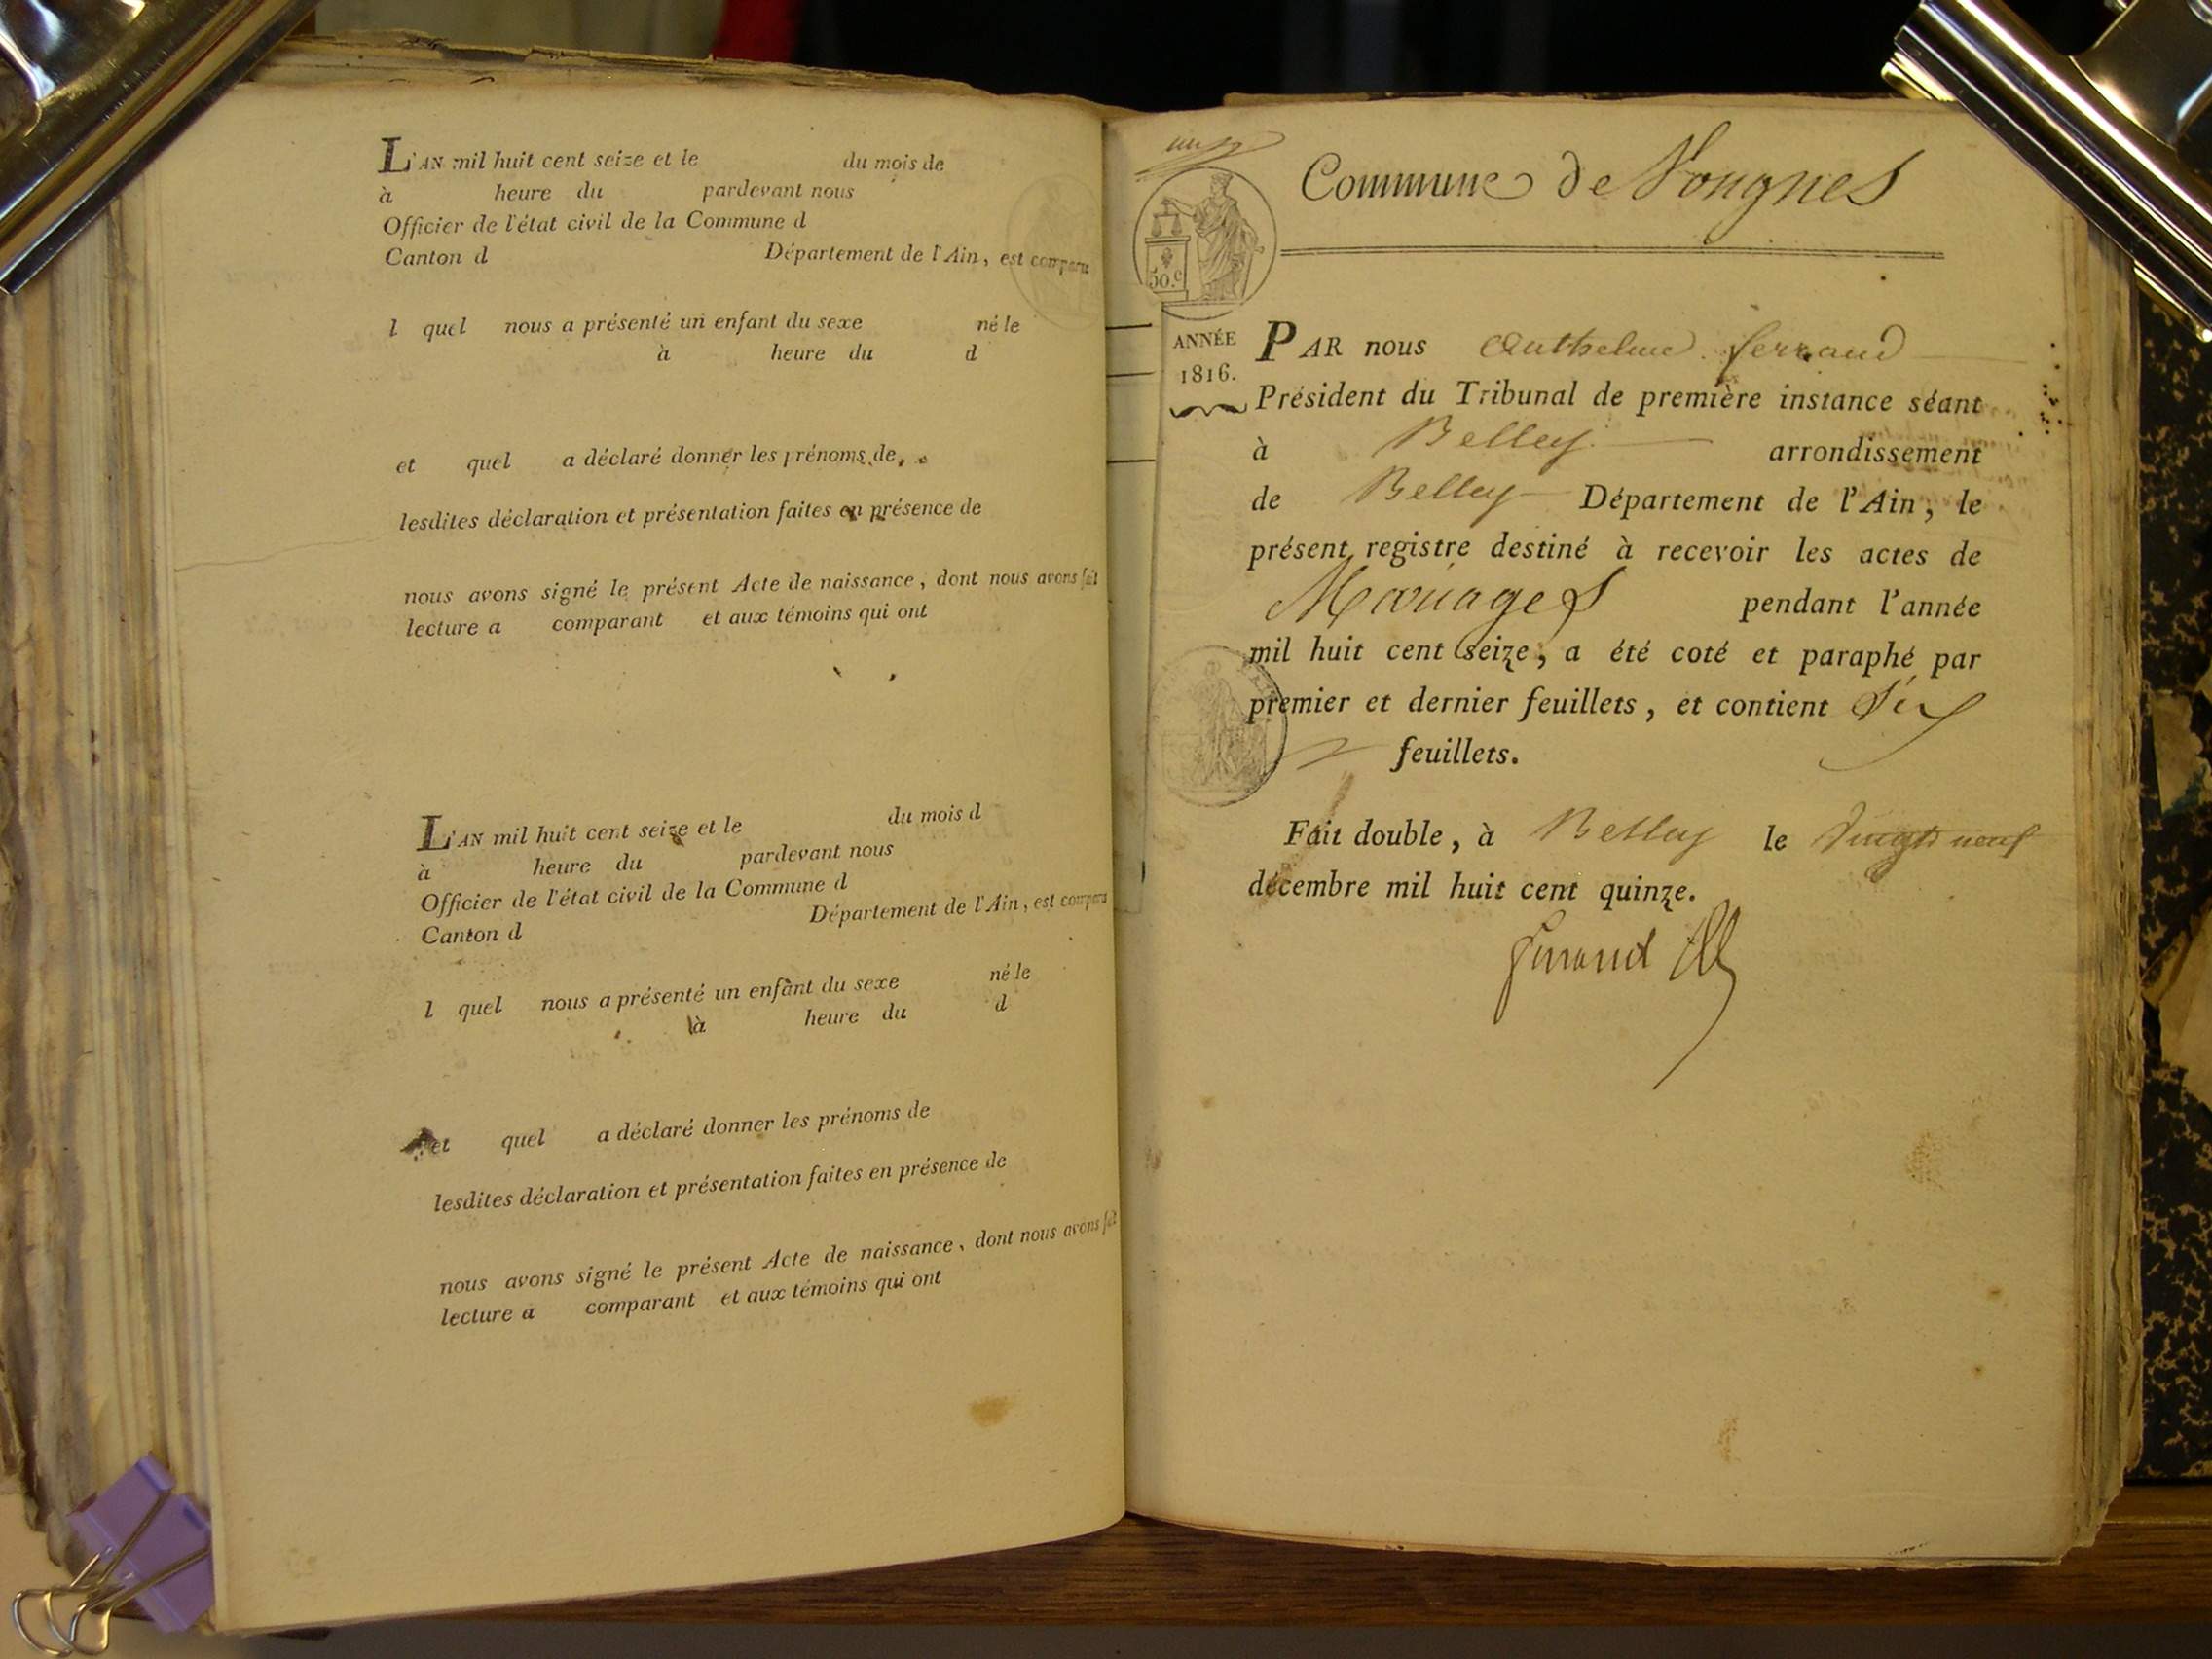 L'AN mil huit cent seize et le du mois de
à heure du pardevant nous
Officier de l'état civil de la Commune d
Canton d Département de l'Ain, est comparu
l quel nous a présenté un enfant du sexe né le
à heure du d
et quel a déclaré donner les prénoms de
lesdites déclaration et présentation faites en présence de
nous avons signé le présent Acte de naissance, dont nous avons fait
lecture a comparant et aux témoins qui ont
L'AN mil huit cent seize et le du mois d
à heure du pardevant nous
Officier de l'état civil de la Commune d
Canton d Département de l'Ain, est comparu
l quel nous a présenté un enfant du sexe né le
à heure du d
et quel a déclaré donner les prénoms de
lesdites déclaration et présentation faites en présence de
nous avons signé le présent Acte de naissance, dont nous avons fait
lecture a comparant et aux témoins qui ont
Commune de Vongnes
50.c
ANNÉE
1816.
PAR nous Anthelme ferrand
Président du Tribunal de première instance séant
à Belley arrondissement
de Belley Département de l'Ain, le
présent registre destiné à recevoir les actes de
Mariages pendant l'année
mil huit cent seize, a été coté et paraphé par
premier et dernier feuillets, et contient Six
feuillets.
Fait double, à Belley le Vingt neuf
décembre mil huit cent quinze.